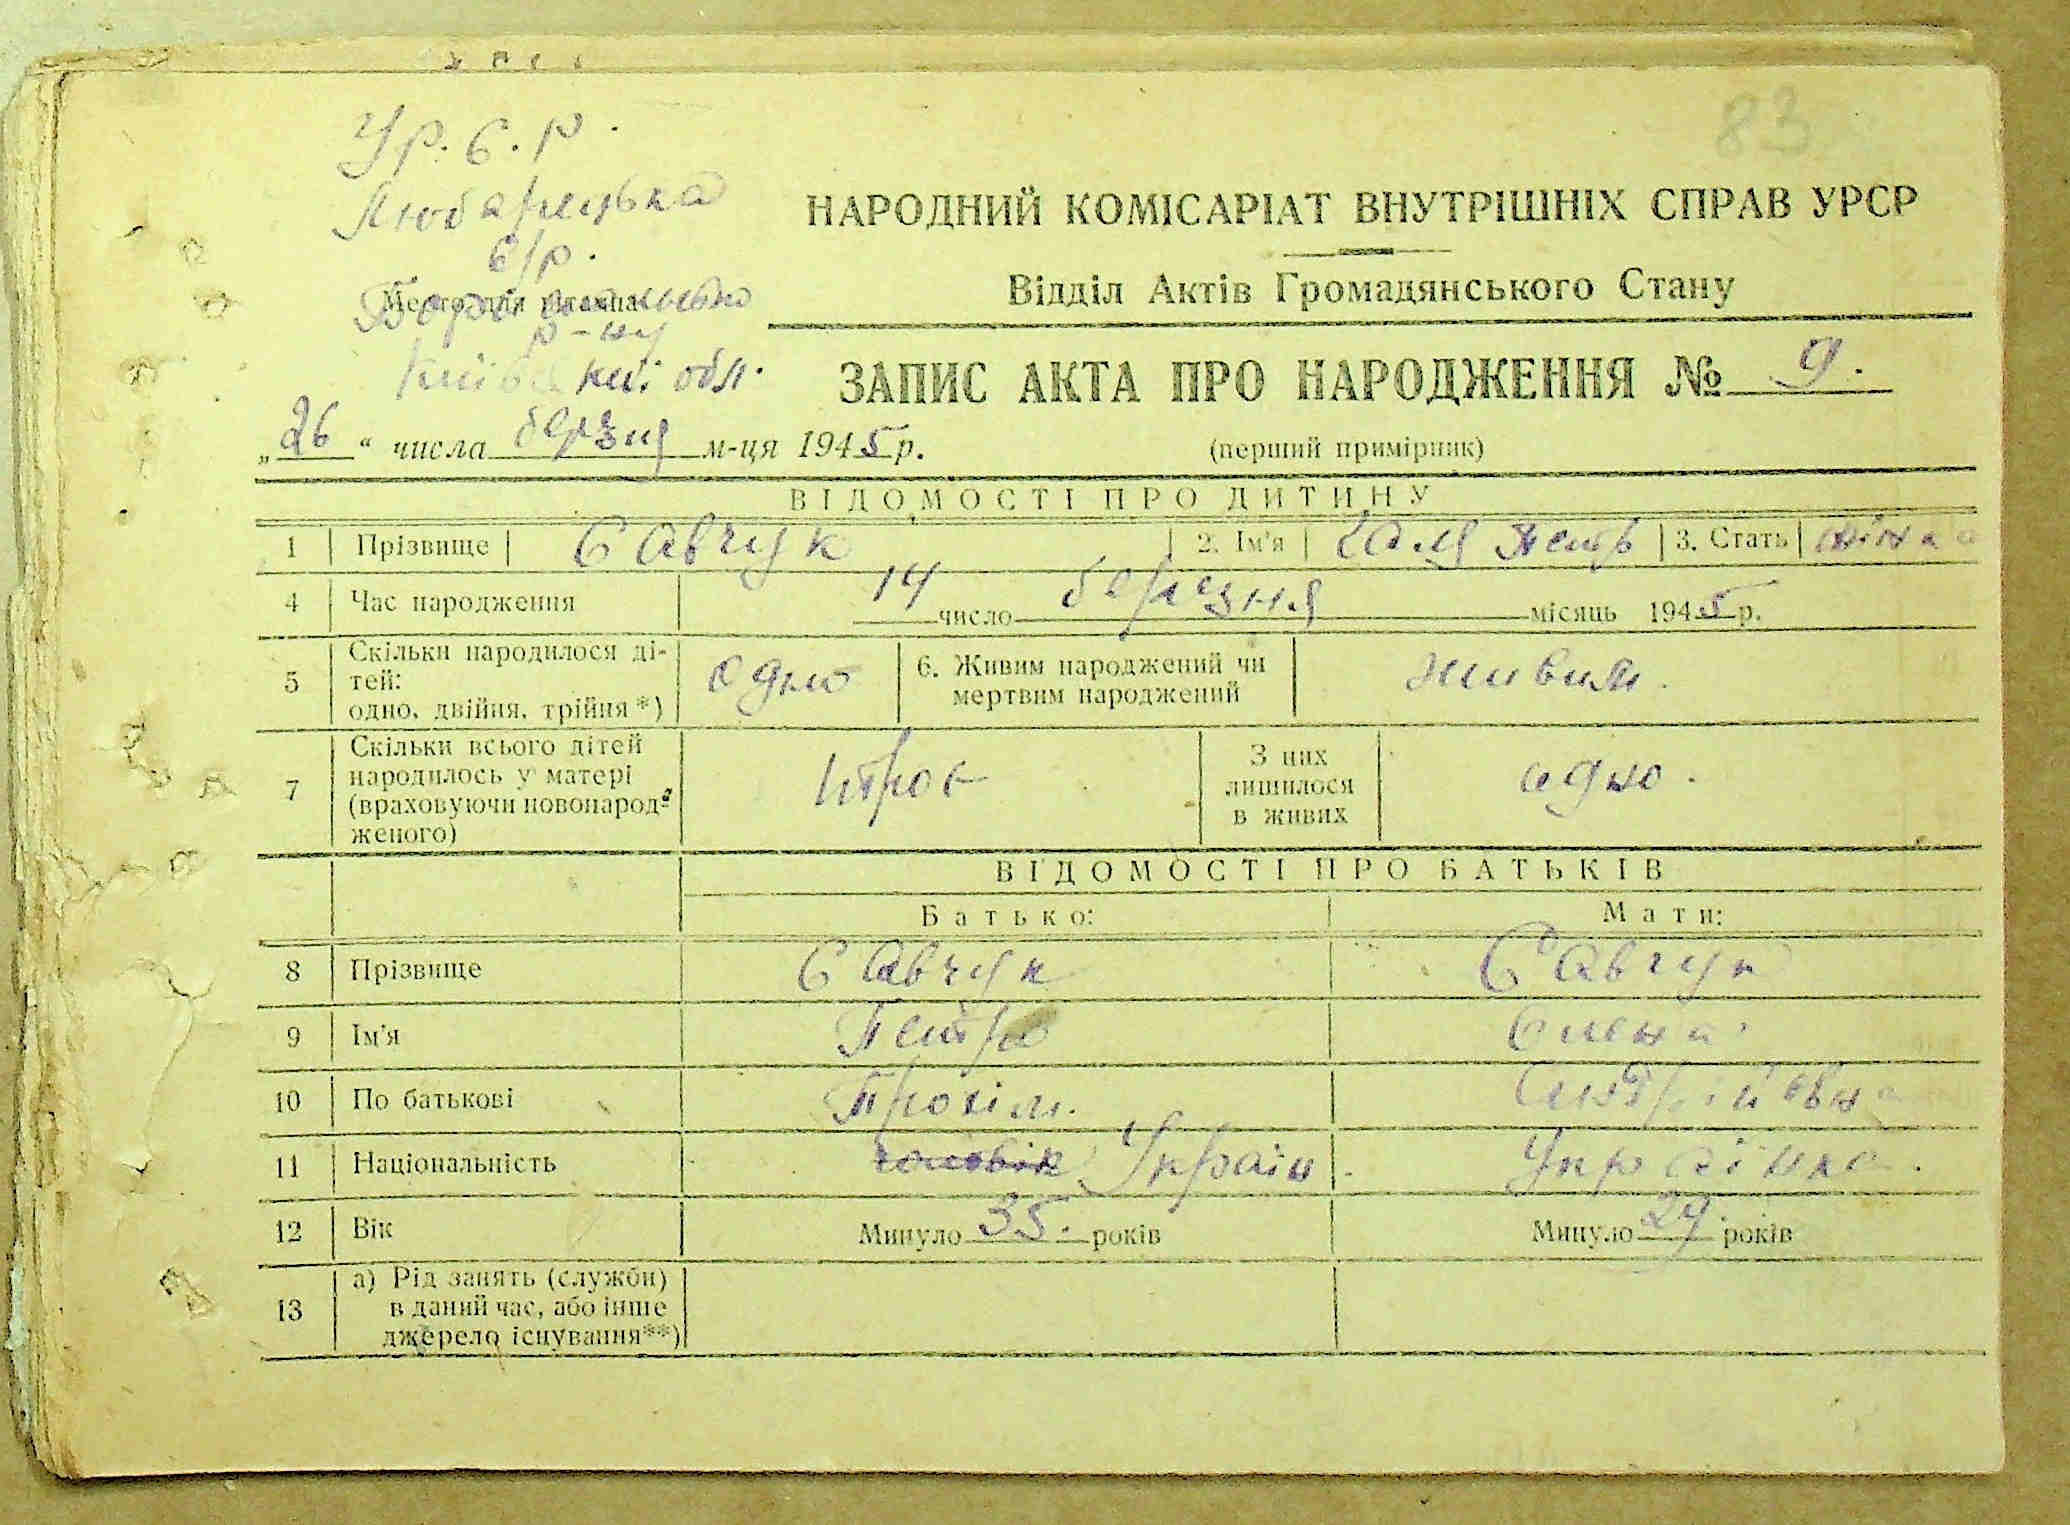 83
Ур. С. Р.
Любарецька
с/р.
Место для штампа
р-ну
Київської обл.
НАРОДНИЙ КОМІСАРІАТ ВНУТРІШНІХ СПРАВ УРСР
Відділ Актів Громадянського Стану
ЗАПИС АКТА ПРО НАРОДЖЕННЯ № 9.
„26" числа берзня м-ця 1945 р.
(перший примірник)
ВІДОМОСТІ ПРО ДИТИНУ
1 Прізвище Савчук 2. Ім'я Галя Петр 3. Стать жінка
4 Час народження 14 число березня місяць 1945 р.
5 Скільки народилося ді-
тей:
одно, двійня, трійня *) одно 6. Живим народжений чи
мертвим народжений живим.
7 Скільки всього дітей
народилось у матері
(враховуючи новонарод-
женого) троє З них
лишилося
в живих одно.
ВІДОМОСТІ ПРО БАТЬКІВ
Батько: Мати:
8 Прізвище Савчук Савчук
9 Ім'я Петро Олена
10 По батькові Прохім. Андрійовна
11 Національність чоловік Україн. Українка.
12 Вік Минуло 35. років Минуло 29. років
13 а) Рід занять (служби)
в даний час, або інше
джерело існування**)